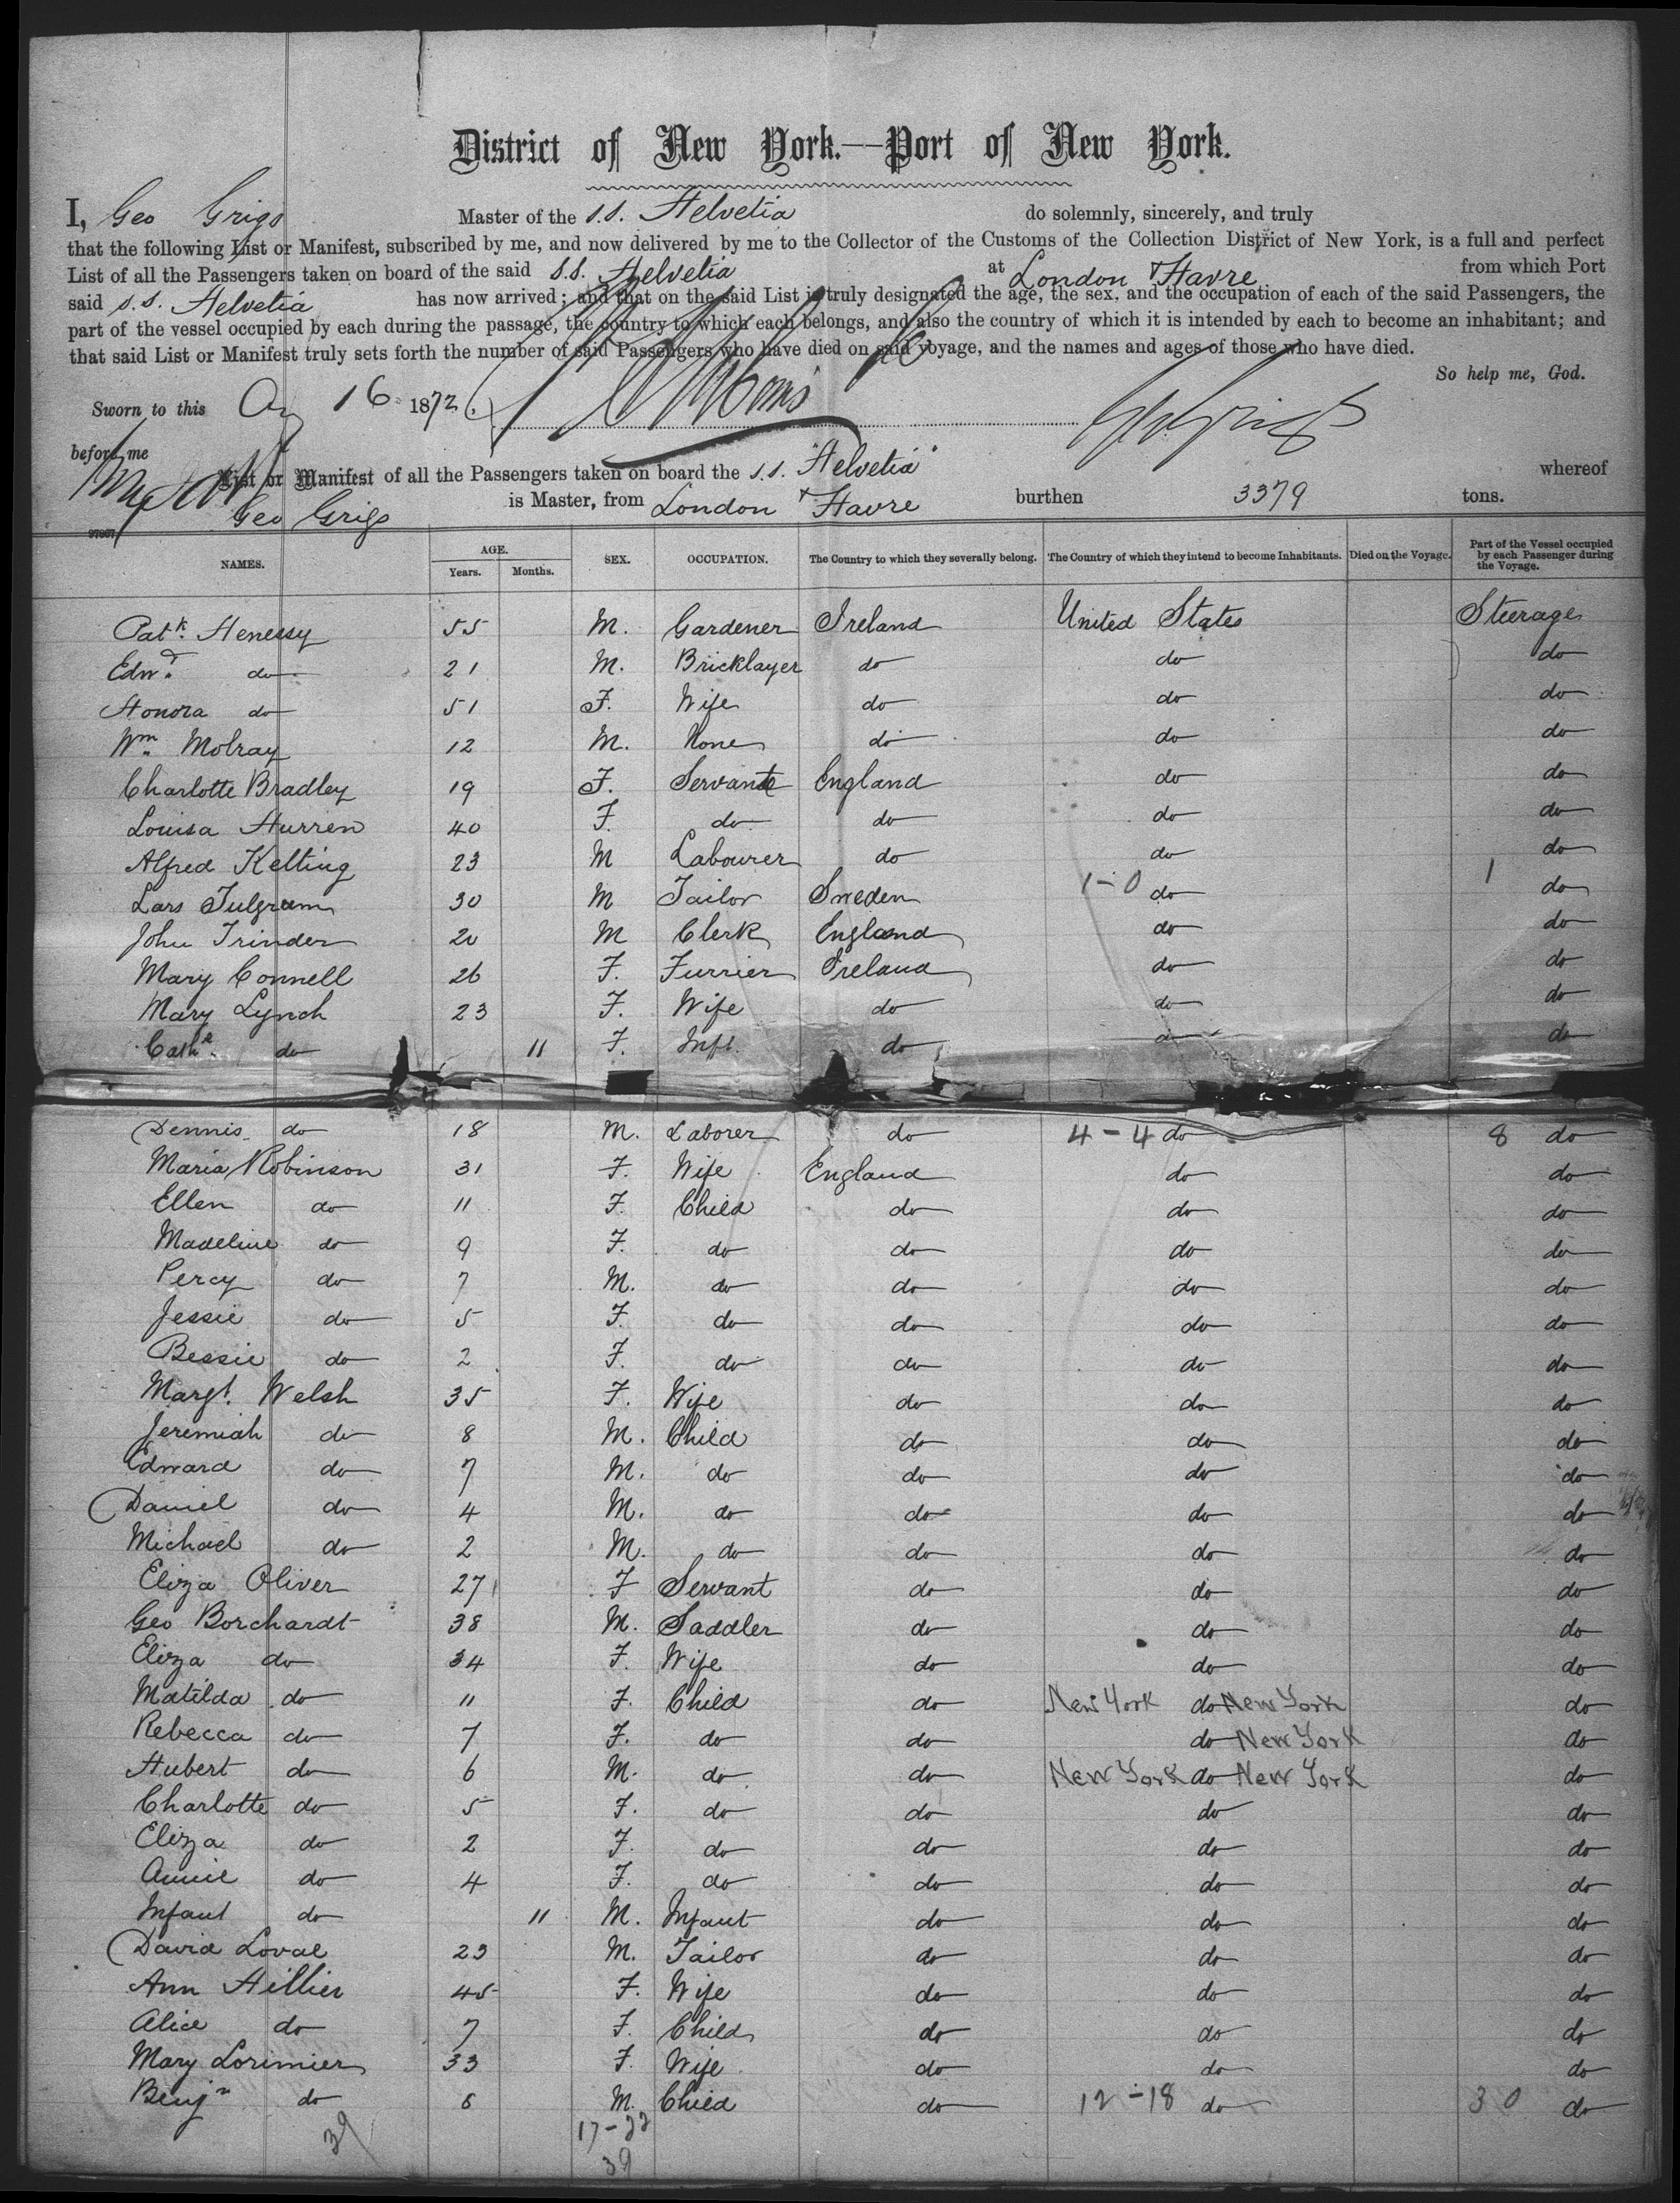 District of New York.—Port of New York.
I, Geo Grigs Master of the s.s. Helvetia do solemnly, sincerely, and truly
that the following List or Manifest, subscribed by me, and now delivered by me to the Collector of the Customs of the Collection District of New York, is a full and perfect
List of all the Passengers taken on board of the said s.s. Helvetia at London & Havre from which Port
said s.s. Helvetia has now arrived; and that on the said List is truly designated the age, the sex, and the occupation of each of the said Passengers, the
part of the vessel occupied by each during the passage, the country to which each belongs, and also the country of which it is intended by each to become an inhabitant; and
that said List or Manifest truly sets forth the number of said Passengers who have died on said voyage, and the names and ages of those who have died.
So help me, God.
Sworn to this 16 1872
before me
List or Manifest of all the Passengers taken on board the s.s. "Helvetia" whereof
Geo Grigs is Master, from London & Havre burthen 3379 tons.
NAMES. AGE. Years. Months. SEX. OCCUPATION. The Country to which they severally belong. The Country of which they intend to become Inhabitants. Died on the Voyage. Part of the Vessel occupied by each Passenger during the Voyage.
Patk. Henessy 55 M. Gardener Ireland United States Steerage
Edwd. do 21 M. Bricklayer do do do
Honora do 51 F. Wife do do do
Wm. Molray 12 M. None do do do
Charlotte Bradley 19 F. Servant England do do
Louisa Hurren 40 F. do do do do
Alfred Kelting 23 M Labourer do do do
Lars Tulgram 30 M Tailor Sweden 1-0 do 1 do
John Trinder 20 M Clerk England do do
Mary Connell 26 F. Furrier Ireland do do
Mary Lynch 23 F. Wife do do do
Cathe. do 11 F. Inft. do do do
Dennis do 18 M. Laborer do 4-4 do 8 do
Maria Robinson 31 F. Wife England do do
Ellen do 11 F. Child do do do
Madeline do 9 F. do do do do
Percy do 7 M. do do do do
Jessie do 5 F. do do do do
Bessie do 2 F. do do do do
Margt. Welsh 35 F. Wife do do do
Jeremiah do 8 M. Child do do do
Edward do 7 M. do do do do
Daniel do 4 M. do do do do
Michael do 2 M. do do do do
Eliza Oliver 27 F Servant do do do
Geo Borchardt 38 M. Saddler do do do
Eliza do 34 F. Wife do do do
Matilda do 11 F. Child do New York do New York do
Rebecca do 7 F. do do do New York do
Hubert do 6 M. do do New York do New York do
Charlotte do 5 F. do do do do
Eliza do 2 F. do do do do
Annie do 4 F. do do do do
Infant do 11 M. Infant do do do
David Loval 23 M. Tailor do do do
Ann Hillier 45 F. Wife do do do
Alice do 7 F. Child do do do
Mary Lorimier 33 F. Wife do do do
Benjn do 6 M. Child do 12-18 do 30 do
39 17-22
39